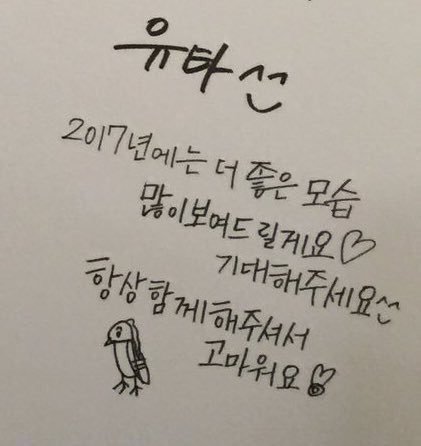 유타선
2017년에는 더 좋은 모습
많이보여드릴게요♡
기대해주세요^^
항상함께해주셔서
고마워요!